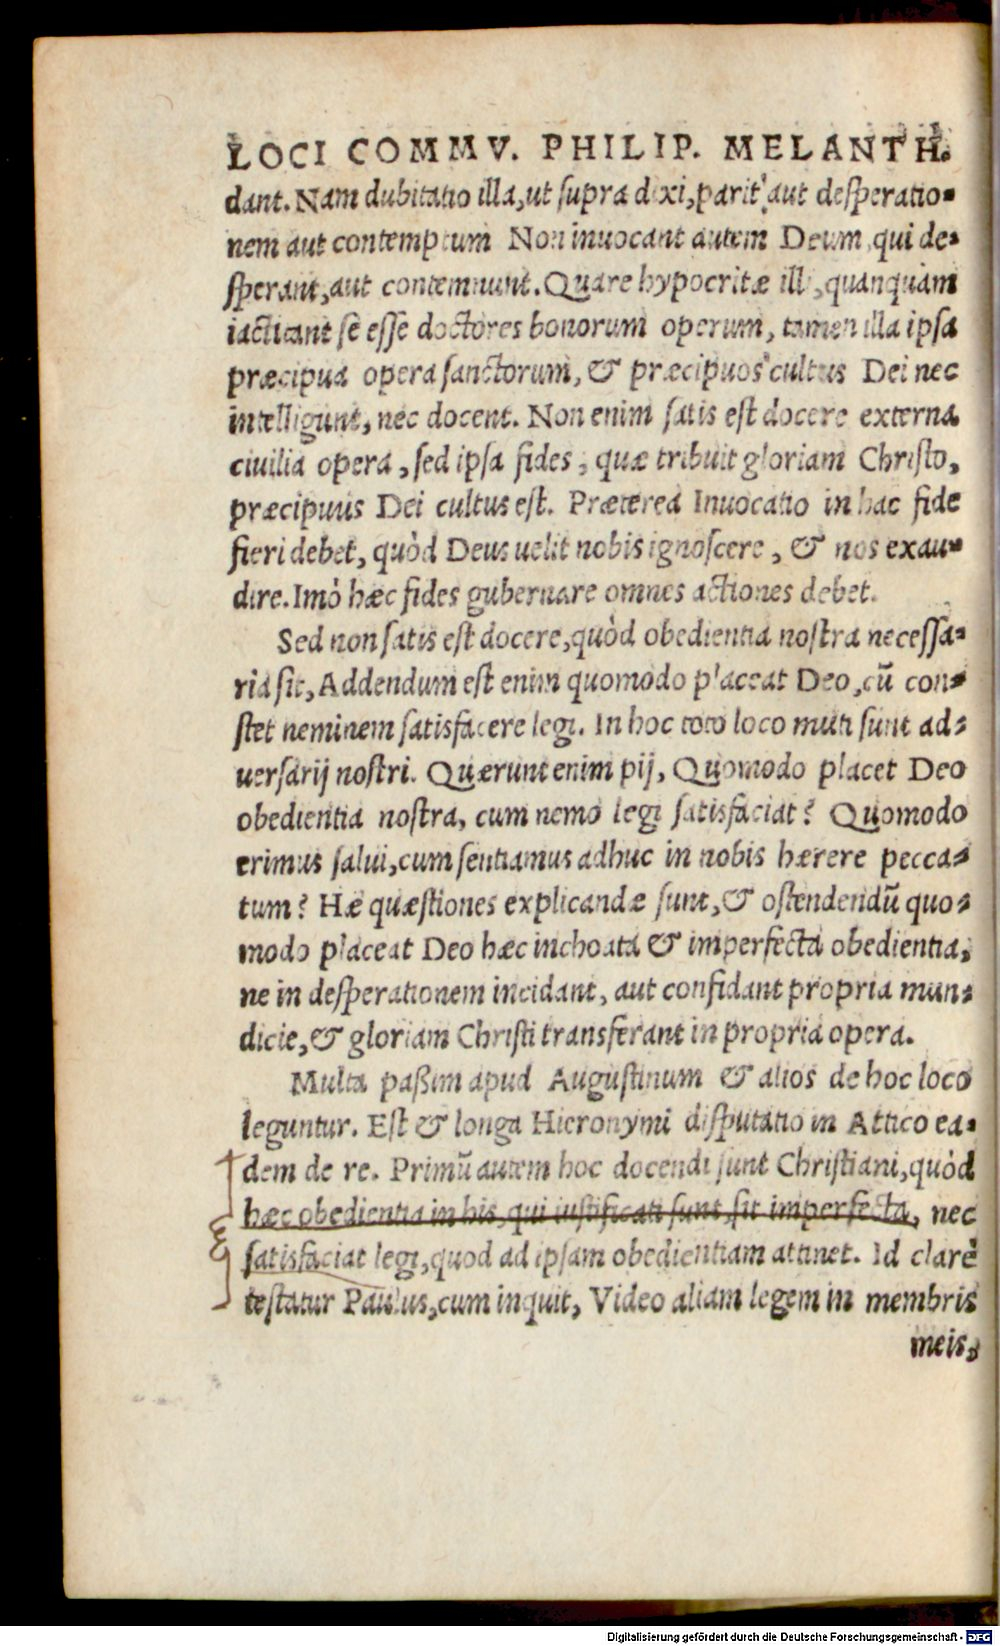 LOCI COMMV. PHILIP. MELANTH.
dant. Nam dubitatio illa, ut supra dixi, parit aut desperatio-
nem aut contemptum Non inuocant autem Deum, qui de-
sperant, aut contemnunt. Quare hypocritæ illi, quanquam
iactitant se esse doctores bonorum operum, tamen illa ipsa
præcipua opera sanctorum, & præcipuos cultus Dei nec
intelligunt, nec docent. Non enim satis est docere externa
ciuilia opera, sed ipsa fides, quæ tribuit gloriam Christo,
præcipuus Dei cultus est. Præterea Inuocatio in hac fide
fieri debet, quòd Deus uelit nobis ignoscere, & nos exau-
dire. Imò hæc fides gubernare omnes actiones debet.
Sed non satis est docere, quòd obedientia nostra necessa-
ria sit, Addendum est enim quomodo placeat Deo, cũ con-
stet neminem satisfacere legi. In hoc toto loco muti sunt ad-
uersarij nostri. Quærunt enim pij, Quomodo placet Deo
obedientia nostra, cum nemo legi satisfaciat? Quomodo
erimus salui, cum sentiamus adhuc in nobis hærere pecca-
tum? Hæ quæstiones explicandæ sunt, & ostendendũ quo-
modo placeat Deo hæc inchoata & imperfecta obedientia,
ne in desperationem incidant, aut confidant propria mun-
dicie, & gloriam Christi transferant in propria opera.
Multa paßim apud Augustinum & alios de hoc loco
leguntur. Est & longa Hieronymi disputatio in Attico ea-
dem de re. Primũ autem hoc docendi sunt Christiani, quòd
hæc obedientia in his, qui iustificati sunt, sit imperfecta, nec
satisfaciat legi, quod ad ipsam obedientiam attinet. Id clarè
testatur Paulus, cum inquit, Video aliam legem in membris
meis,
Digitalisierung gefördert durch die Deutsche Forschungsgemeinschaft - DFG